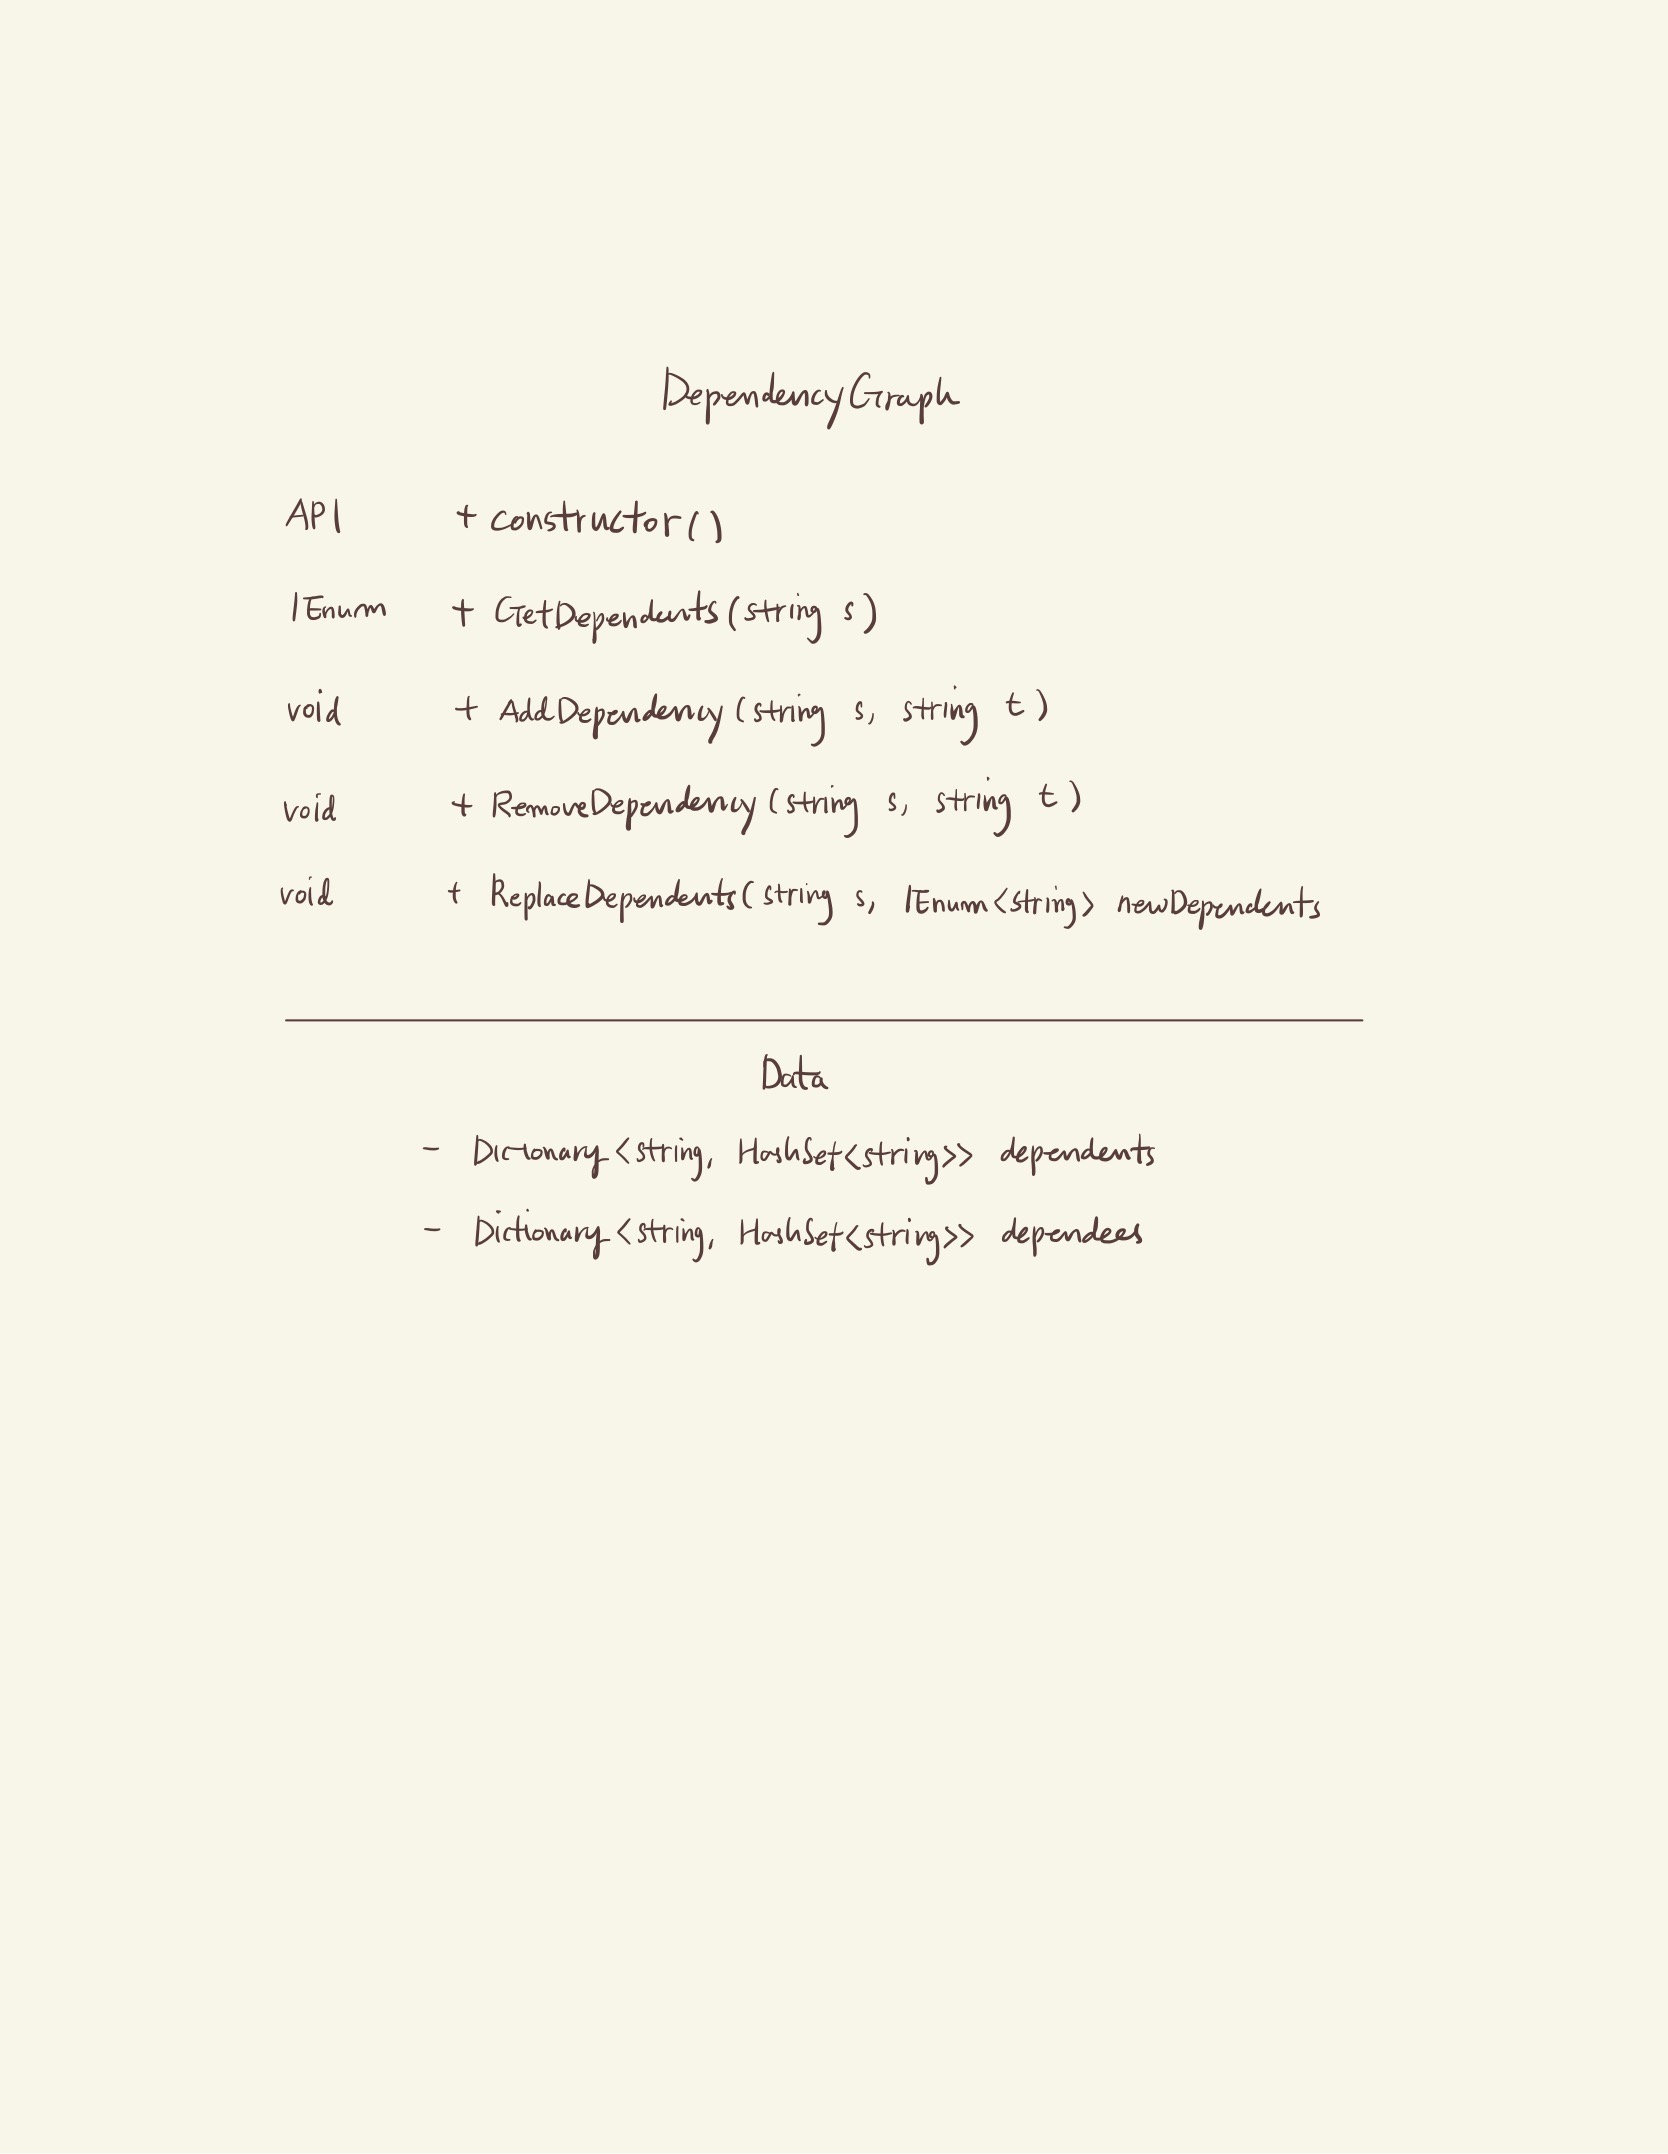 DependencyGraph
API + constructor()
IEnum + GetDependents(string s)
void + AddDependency(string s, string t)
void + RemoveDependency(string s, string t)
void + ReplaceDependents(string s, IEnum<string> newDependents
Data
- Dictionary<string, HashSet<string>> dependents
- Dictionary<string, HashSet<string>> dependees